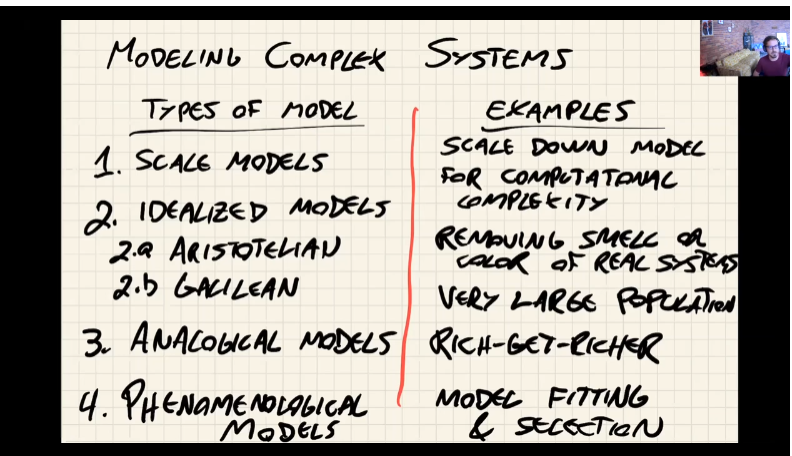 MODELING COMPLEX SYSTEMS
TYPES OF MODEL
1. SCALE MODELS
2. IDEALIZED MODELS
2.a ARISTOTELIAN
2.b GALILEAN
3. ANALOGICAL MODELS
4. PHENOMENOLOGICAL
MODELS
EXAMPLES
SCALE DOWN MODEL
FOR COMPUTATIONAL
COMPLEXITY
REMOVING SMELL OR
COLOR OF REAL SYSTEMS
VERY LARGE POPULATION
RICH-GET-RICHER
MODEL FITTING
& SELECTION